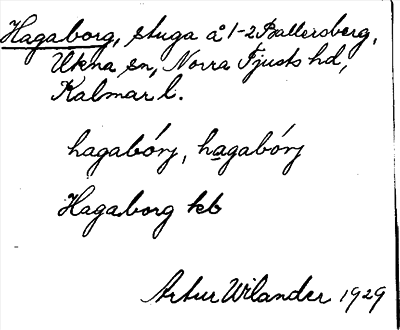 Hagaborg, stuga å 1-2 Ballersberg,
Ukna sn, Norra Tjusts hd,
Kalmar l.
hagabórj, hagabórj
Hagaborg kb
Artur Wilander 1929